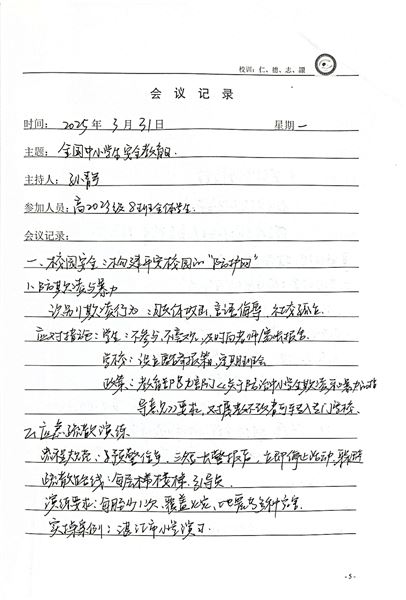 校训：仁、德、志、
会 议 记 录
时间：2025年3月31日 星期一
主题：全国中小学生安全教育日.
主持人：孙青
参加人员：高2023级8班全体学生.
会议记录：
一、校园安全：构建平安校园的“防护网”
1.防欺凌与暴力
识别欺凌行为：肢体攻击、言语侮辱、社交孤立.
应对措施：学生：不参与、不喜欢，及时向老师家长报告
学校：设立 报箱，定期班会
政策：教育部 《关于防治中小学生欺凌和暴力的指
导意见》要求，对屡教不改者可转入专门学校.
2.应急疏散演练
流程规范：预警信号，三次长警报声，立即停止活动，
疏散路线：每层楼楼梯、引导员
演练要求：每月至少1次，覆盖火灾、地震等多种灾害
实操案例：湛江市小学演习.
- 5 -